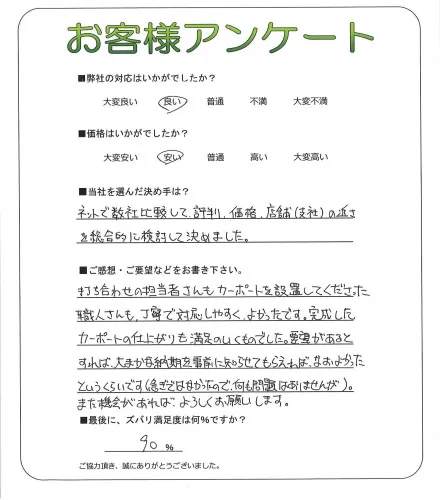 お客様アンケート
■弊社の対応はいかがでしたか？
大変良い 良い 普通 不満 大変不満
■価格はいかがでしたか？
大変安い 安い 普通 高い 大変高い
■当社を選んだ決め手は？
ネットで数社比較して、評判、価格、店舗(支社)の近さ
を総合的に検討して決めました。
■ご感想・ご要望などをお書き下さい。
打ち合わせの担当者さんもカーポートを設置してくださった
職人さんも、丁寧で対応しやすく、よかったです。完成した
カーポートの仕上がりも満足のいくものでした。要望があると
すれば、大まかな納期を事前に知らせてもらえれば、なおよかった
というくらいです(急ぎではなかったので、何も問題はありませんが)。
また機会があれば、よろしくお願いします。
■最後に、ズバリ満足度は何%ですか？
90 %
ご協力頂き、誠にありがとうございました。